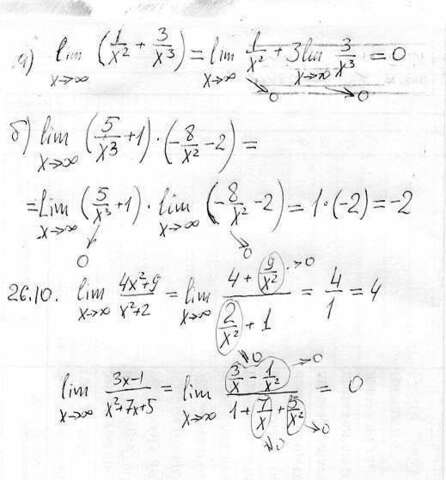 а) lim x→∞ (1/x² + 3/x³) = lim x→∞ 1/x² + 3 lim x→∞ 3/x³ = 0
→0 →0
б) lim x→∞ (5/x³ + 1) · (-8/x² - 2) =
= lim x→∞ (5/x³ + 1) · lim x→∞ (-8/x² - 2) = 1 · (-2) = -2
0 0
26.10. lim x→∞ (4x²+9)/(x²+2) = lim x→∞ (4 + 9/x² →0)/(2/x² + 1) = 4/1 = 4
lim x→∞ (3x-1)/(x²+7x+5) = lim x→∞ (3/x →0 - 1/x² →0)/(1 + 7/x →0 + 5/x² →0) = 0